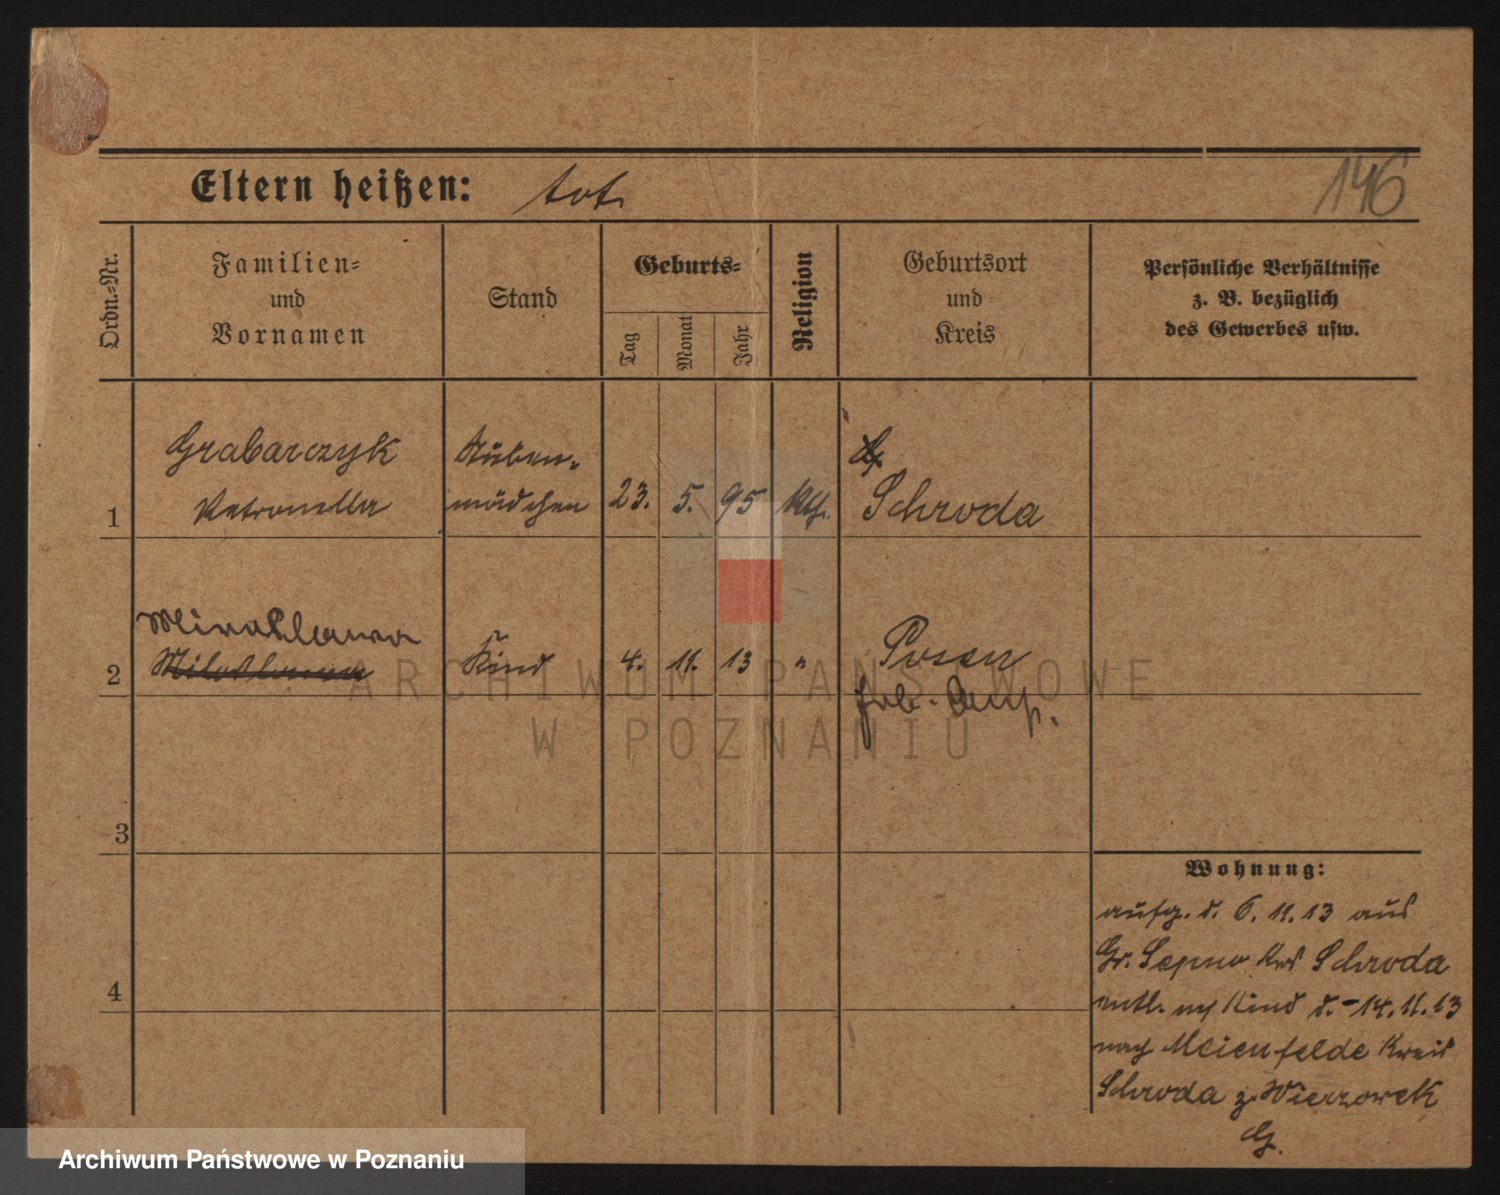 146
Eltern heißen: tot.
Ordn.-Nr.
Familien-
und
Vornamen
Stand
Geburts-
Tag
Monat
Jahr
Religion
Geburtsort
und
Kreis
Persönliche Verhältnisse
z. B. bezüglich
des Gewerbes usw.
1
Grabarczyk
Petronella
Stuben-
mädchen
23. 5. 95 kth.
Schroda
2
Miroslawa
Miloslawa
Kind
4. 11. 13 "
Posen
3
4
Wohnung:
aufg. d. 6. 11. 13 aus
Gr. Sepno Krs Schroda
entl. m Kind d. - 14. 11. 13
nach Meienfelde Kreis
Schroda z. Wierzorek
G.
ARCHIWUM PAŃSTWOWE
W POZNANIU
Archiwum Państwowe w Poznaniu